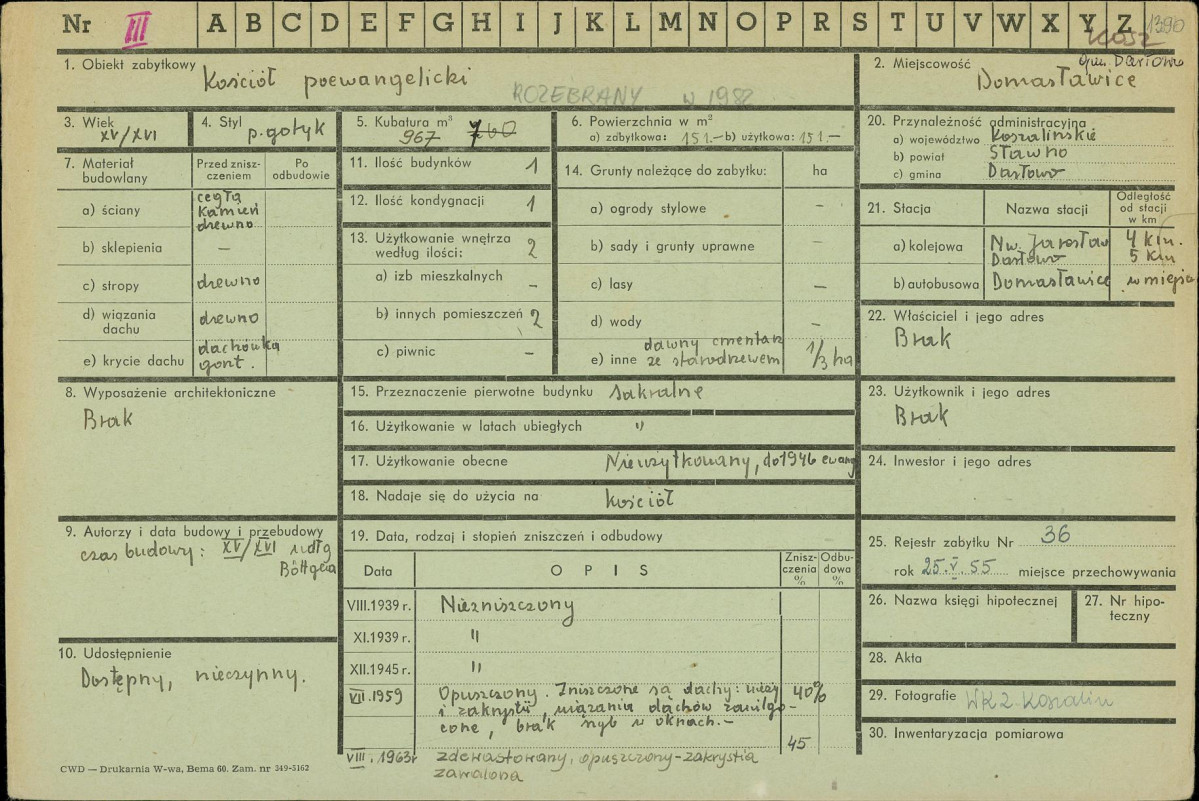 Nr III A B C D E F G H I J K L M N O P R S T U V W X Y Z 1390
KOSZ
1. Obiekt zabytkowy Kościół poewangelicki
ROZEBRANY w 1982
2. Miejscowość gm. Darłowo
Domasławice
3. Wiek XV/XVI
4. Styl p. gotyk
5. Kubatura m³
967 760
6. Powierzchnia w m²
a) zabytkowa: 151.— b) użytkowa: 151.—
7. Materiał budowlany
Przed zniszczeniem
Po odbudowie
a) ściany cegła kamień drewno
b) sklepienia —
c) stropy drewno
d) wiązania dachu drewno
e) krycie dachu dachówka gont.
8. Wyposażenie architektoniczne
Brak
9. Autorzy i data budowy i przebudowy
czas budowy: XV/XVI wdłg
Böttgera
10. Udostępnienie
Dostępny, nieczynny.
11. Ilość budynków 1
12. Ilość kondygnacji 1
13. Użytkowanie wnętrza
według ilości: 2
a) izb mieszkalnych —
b) innych pomieszczeń 2
c) piwnic —
14. Grunty należące do zabytku: ha
a) ogrody stylowe —
b) sady i grunty uprawne —
c) lasy —
d) wody —
e) inne dawny cmentarz ze starodrzewem 1/3 ha
15. Przeznaczenie pierwotne budynku sakralne
16. Użytkowanie w latach ubiegłych "
17. Użytkowanie obecne Nieużytkowany, do 1946 ewang
18. Nadaje się do użycia na kościół
19. Data, rodzaj i stopień zniszczeń i odbudowy
Data OPIS Zniszczenia % Odbudowa %
VIII.1939 r. Niezniszczony
XI.1939 r. "
XII.1945 r. "
VII.1959 Opuszczony. Zniszczone są dachy: wieży 40%
i zakrystii, wiązania dachów zawilgo-
cone, brak szyb w oknach.—
45
VIII. 1963r zdewastowany, opuszczony-zakrystia
zawalona
20. Przynależność administracyjna
a) województwo Koszalińskie
b) powiat Sławno
c) gmina Darłowo
21. Stacja Nazwa stacji Odległość od stacji w km
a) kolejowa Nw. Jarosław 4 km.
Darłowo 5 km
b) autobusowa Domasławice w miejsc
22. Właściciel i jego adres
Brak
23. Użytkownik i jego adres
Brak
24. Inwestor i jego adres
25. Rejestr zabytku Nr 36
rok 25.V.55 miejsce przechowywania
26. Nazwa księgi hipotecznej
27. Nr hipoteczny
28. Akta
29. Fotografie WKZ Koszalin
30. Inwentaryzacja pomiarowa
CWD — Drukarnia W-wa, Bema 60. Zam. nr 349-5162